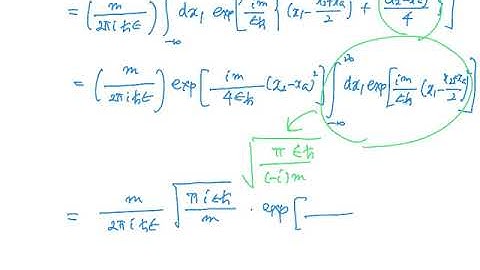 = (m/2πiħε) ∫_{-∞} dx₁ exp[im/εħ { (x₁ - x₂+x_a/2)² + (x₂-x_a)²/4 }]
= (m/2πiħε) exp[im/4εħ (x₂-x_a)²] ∫_{-∞}^{∞} dx₁ exp[im/εħ (x₁ - x₂+x_a/2)²]
√(πεħ/(-i)m)
= m/2πiħε √(πiεħ/m) · exp[